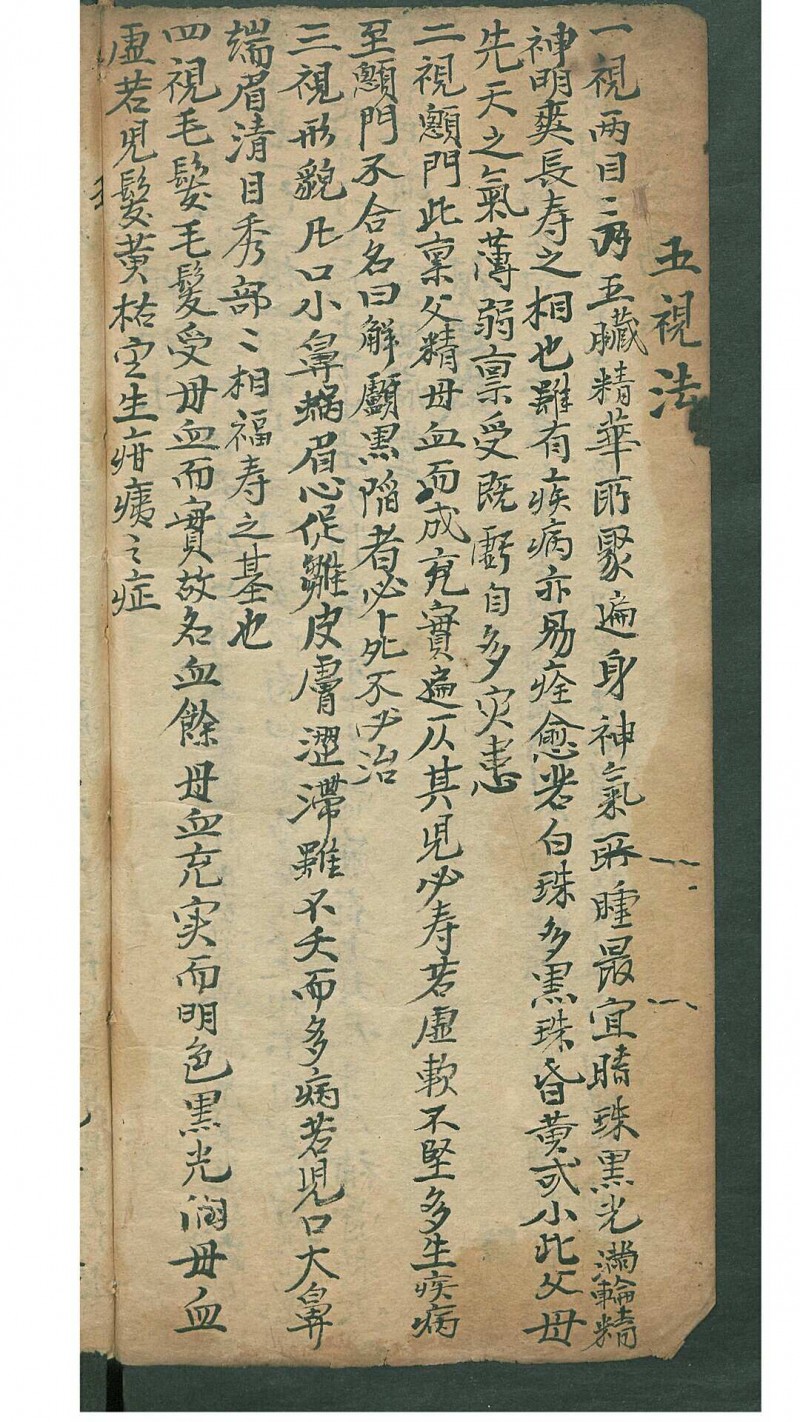 五視法
一視两目二乃五臟精華所聚遍身神氣所腫最宜睛珠黑光满輪精
神明爽長寿之相也雖有疾病亦易痊愈若白珠多黑珠昏黄或小此父母
先天之氣薄弱禀受既虧自多灾患
二視顖門此禀父精母血而成充實遍仄其児必寿若虚軟不堅多生疾病
至顖門不合名曰解顱黑陷者必卜死不必治
三視形貌凡口小鼻蝸眉心促皺皮膚澀滯雖不夭而多病若児口大鼻
端眉清目秀部二相福寿之基也
四視毛髮毛髪受母血而實故名血餘母血充实而明色黒光润母血
虚若児髮黄枯定生疳痍之症